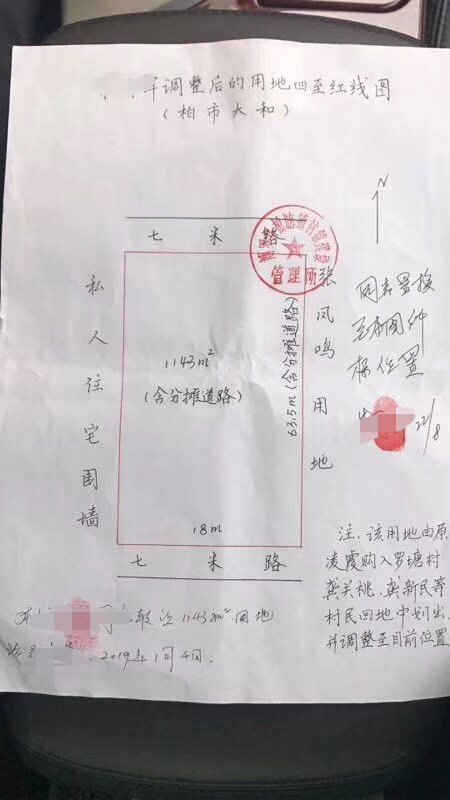 调整后的用地四至红线图
(柏市大和)
N
七米路
管理所
私人住宅围墙
1143m²
(含分摊道路)
63.5m(含分摊道路)
张凤鸣用地
同意置换
至本图所
标位置
22/8
18m
七米路
注:该用地由原
凌霞购入罗塘村
龚关桃、龚新民等
村民回地中划出,
并调整至目前位置
1143m²用地
2019年1月4日.